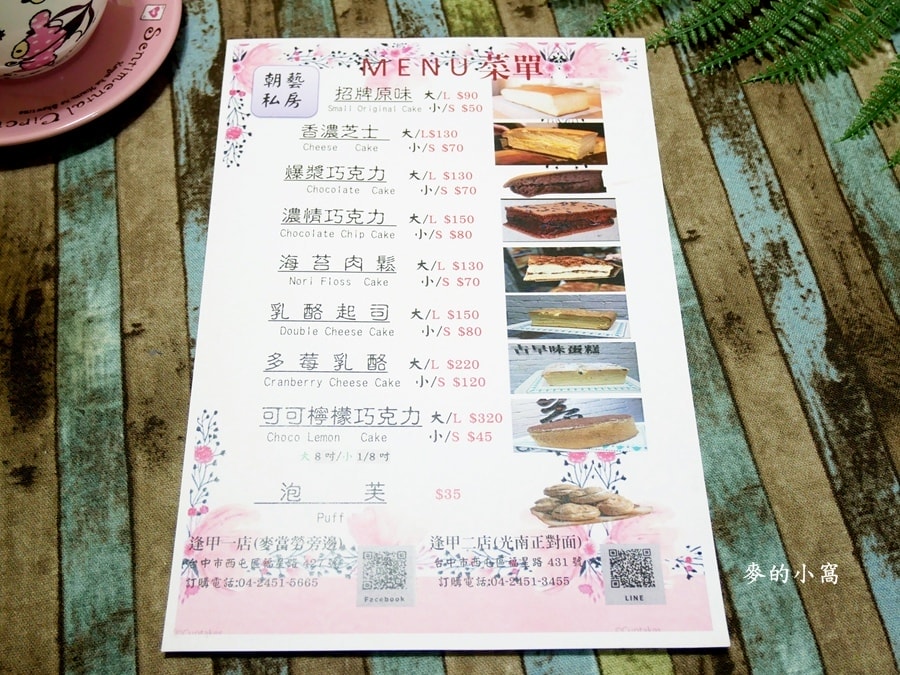 Sentimental Circus
朝藝
私房
MENU 菜單
招牌原味 大/L $90
Small Original Cake 小/S $50
香濃芝士 大/L$130
Cheese Cake 小/S $70
爆漿巧克力 大/L $130
Chocolate Cake 小/S $70
濃情巧克力 大/L $150
Chocolate Chip Cake 小/S $80
海苔肉鬆 大/L $130
Nori Floss Cake 小/S $70
乳酪起司 大/L $150
Double Cheese Cake 小/S $80
古早味蛋糕
多莓乳酪 大/L $220
Cranberry Cheese Cake 小/S $120
可可檸檬巧克力 大/L $320
Choco Lemon Cake 小/S $45
大 8 吋/小 1/8 吋
泡芙 $35
Puff
逢甲一店(麥當勞旁邊)
台中市西屯區福星路 427
訂購電話:04-2451-5665
Facebook
逢甲二店(光南正對面)
台中市西屯區福星路 431 號
訂購電話:04-2451-3455
LINE
麥的小窩